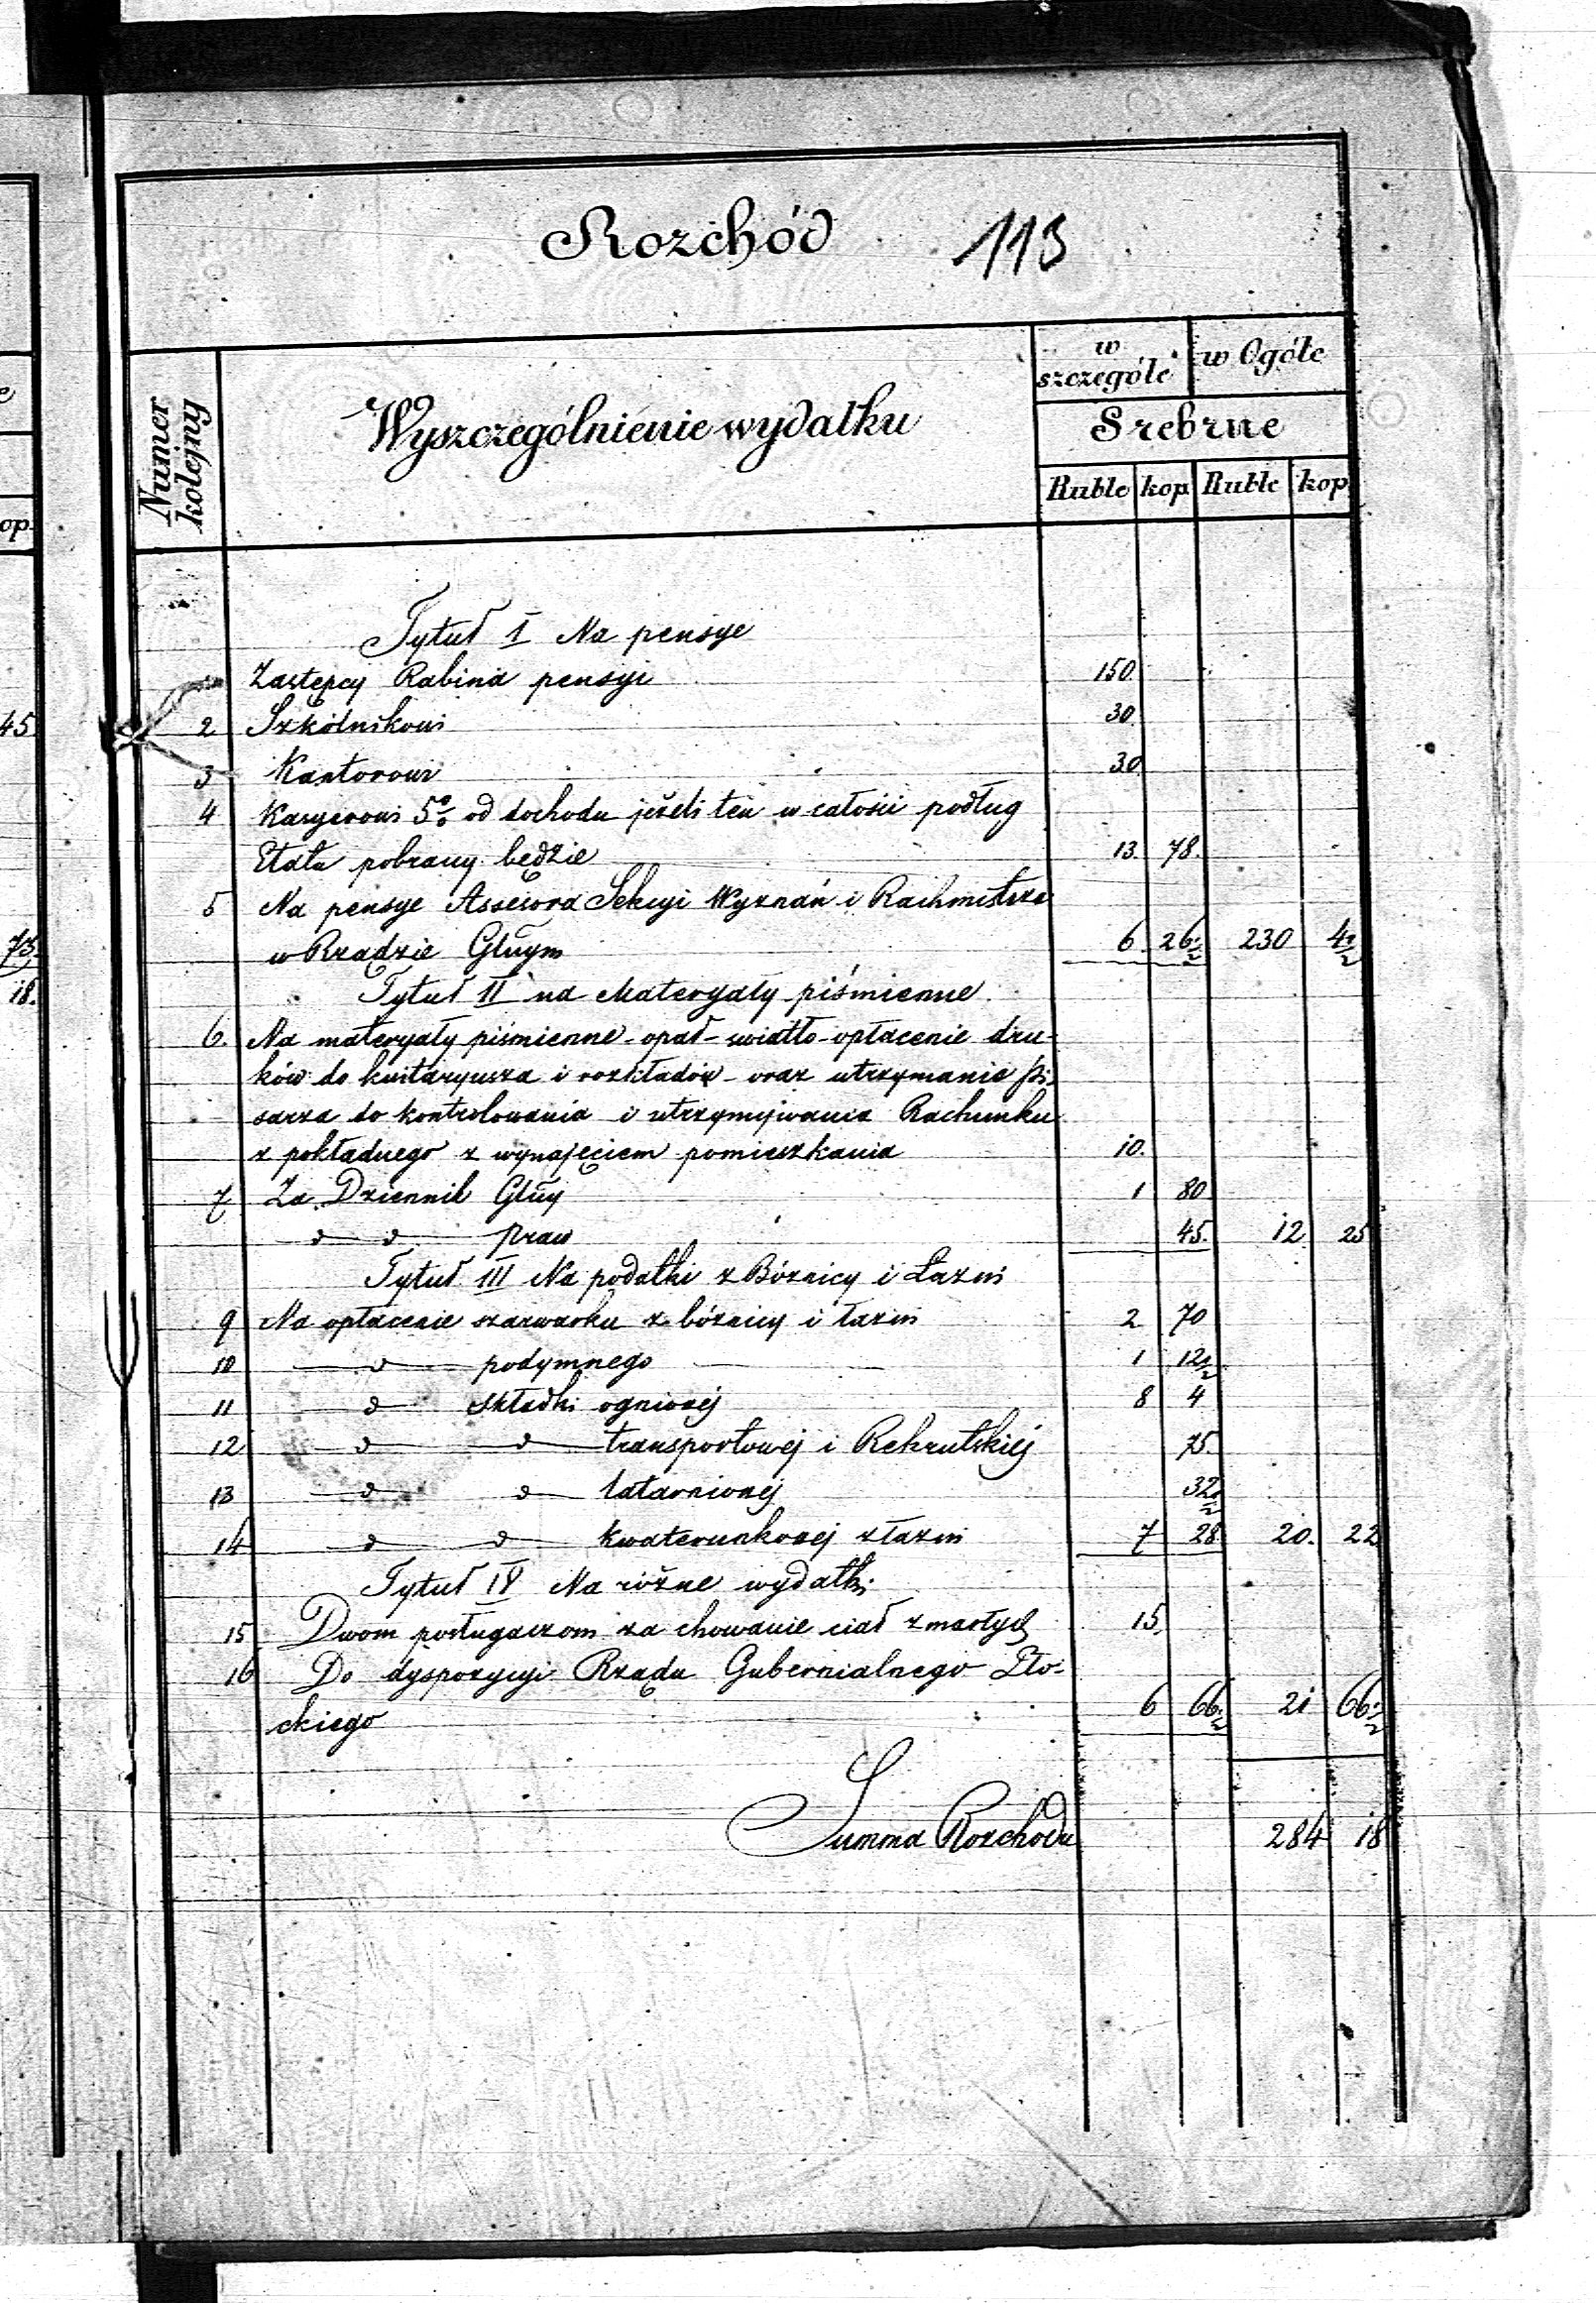 e
op.
45
73.
18.
Rozchód 113
Numer kolejny
Wyszczególnienie wydatku
w szczególe
w Ogóle
Srebrne
Ruble kop Ruble kop
Tytuł I Na pensye
1 Zastępcy Rabina pensyi 150
2 Szkólnikowi 30
3 Kantorowi 30
4 Kasyerowi 5% od dochodu jeżeli ten w całości podług
Etatu pobrany będzie 13. 78.
5 Na pensye Assesora Sekcyi Wyznań i Rachmistrza
w Rządzie Głnym 6 26½ 230 4½
Tytuł II na Materyały piśmienne
6. Na materyały piśmienne - opał - swiatło - opłacenie dru-
ków do kwitaryusza i rozkładów - oraz utrzymanie pi-
sarza do kontrolowania i utrzymywania Rachunku
z pokładnego z wynajęciem pomieszkania 10.
7 Za Dziennik Głny 1 80
" " praw 45. 12 25
Tytuł III Na podatki z Bóżnicy i Łaźni
9 Na opłacenie szarwarku z bóżnicy i łaźni 2 70
10 " podymnego 1 12½
11 " składki ogniowéj 8 4
12 " " transportowej i Rekrutskiéj 75.
13 " " latarniowéj 32½
14 " " kwaterunkowéj z łaźni 7 28 20. 22
Tytuł IV Na różne wydatki
15 Dwom posługaczom za chowanie ciał zmarłych 15.
16 Do dyspozycyi Rządu Gubernialnego Pło-
ckiego 6 66½ 21 66½
Summa Rozchodu 284 18